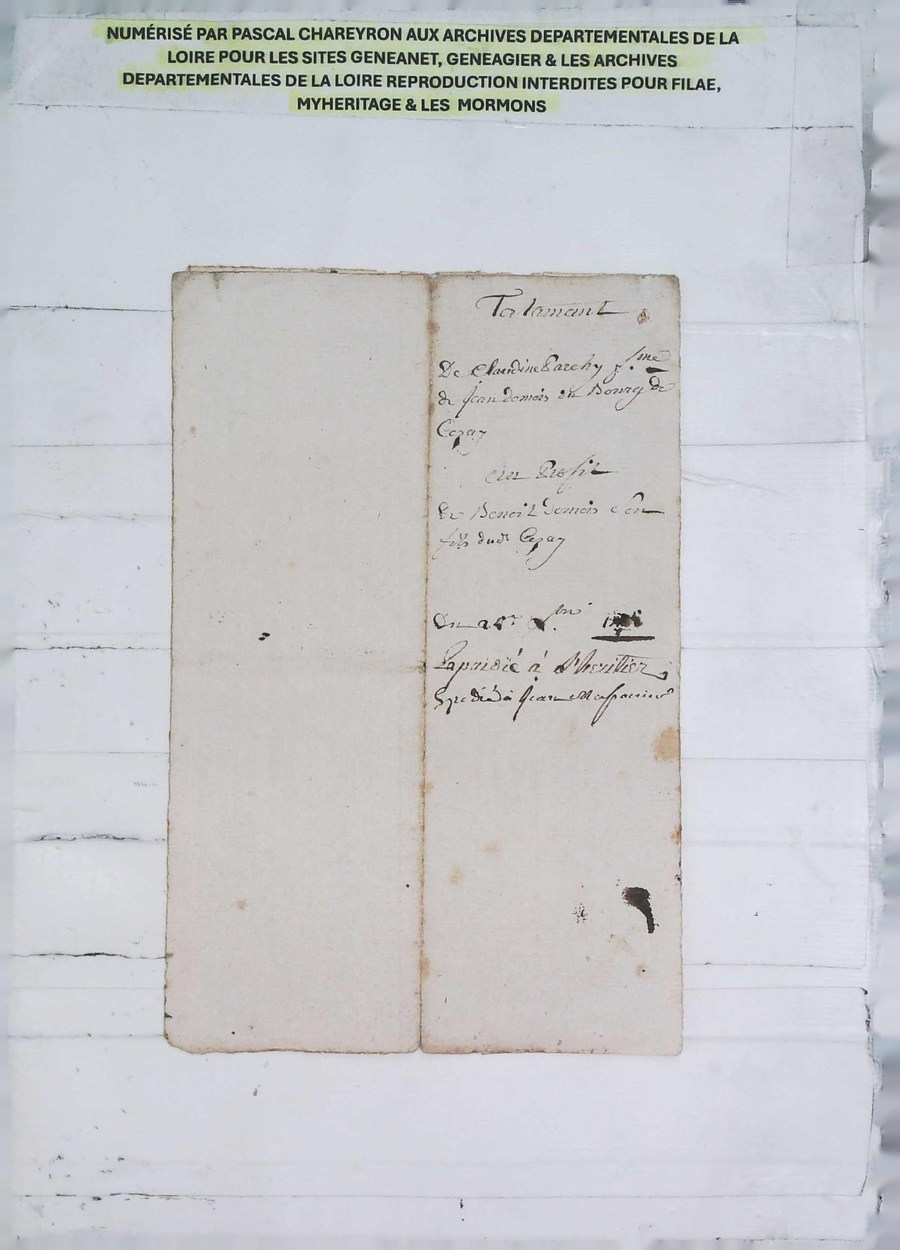 NUMÉRISÉ PAR PASCAL CHAREYRON AUX ARCHIVES DEPARTEMENTALES DE LA
LOIRE POUR LES SITES GENEANET, GENEAGIER & LES ARCHIVES
DEPARTEMENTALES DE LA LOIRE REPRODUCTION INTERDITES POUR FILAE,
MYHERITAGE & LES MORMONS
Testamant
De Claudine f.me
de Jean domois du Bourg de
Cezay
Au Profit
De Benoit domois son
fils dud. Cezay
Du
Expaidié à l'heritier
Expedié à Jean